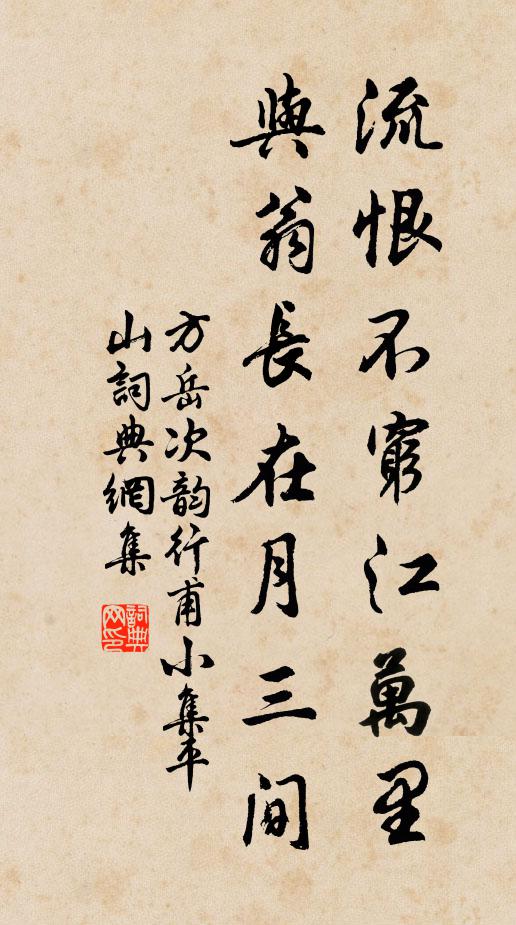 流恨不窮江萬里
與翁長在月三间
方岳次韵行甫小集平
山詞典網集
詞典网印